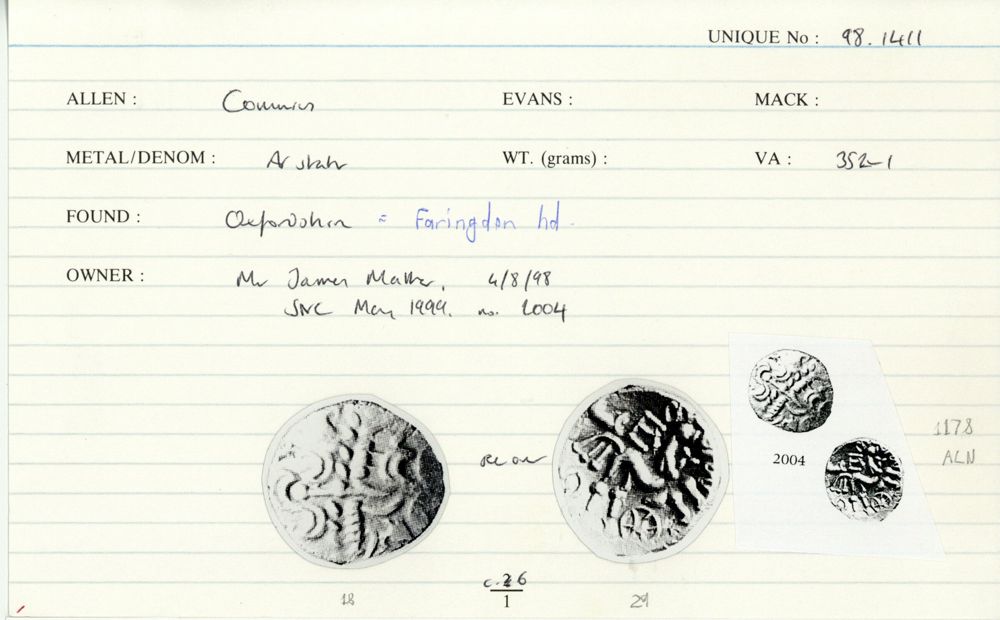 UNIQUE No : 98.1411
ALLEN : Commius EVANS : MACK :
METAL/DENOM : Ar stater WT. (grams) : VA : 352-1
FOUND : Oxfordshire = Faringdon hd.
OWNER : Mr James 4/8/98
SNC May 1999. no. 2004
2004
1178
ALN
1
18 29